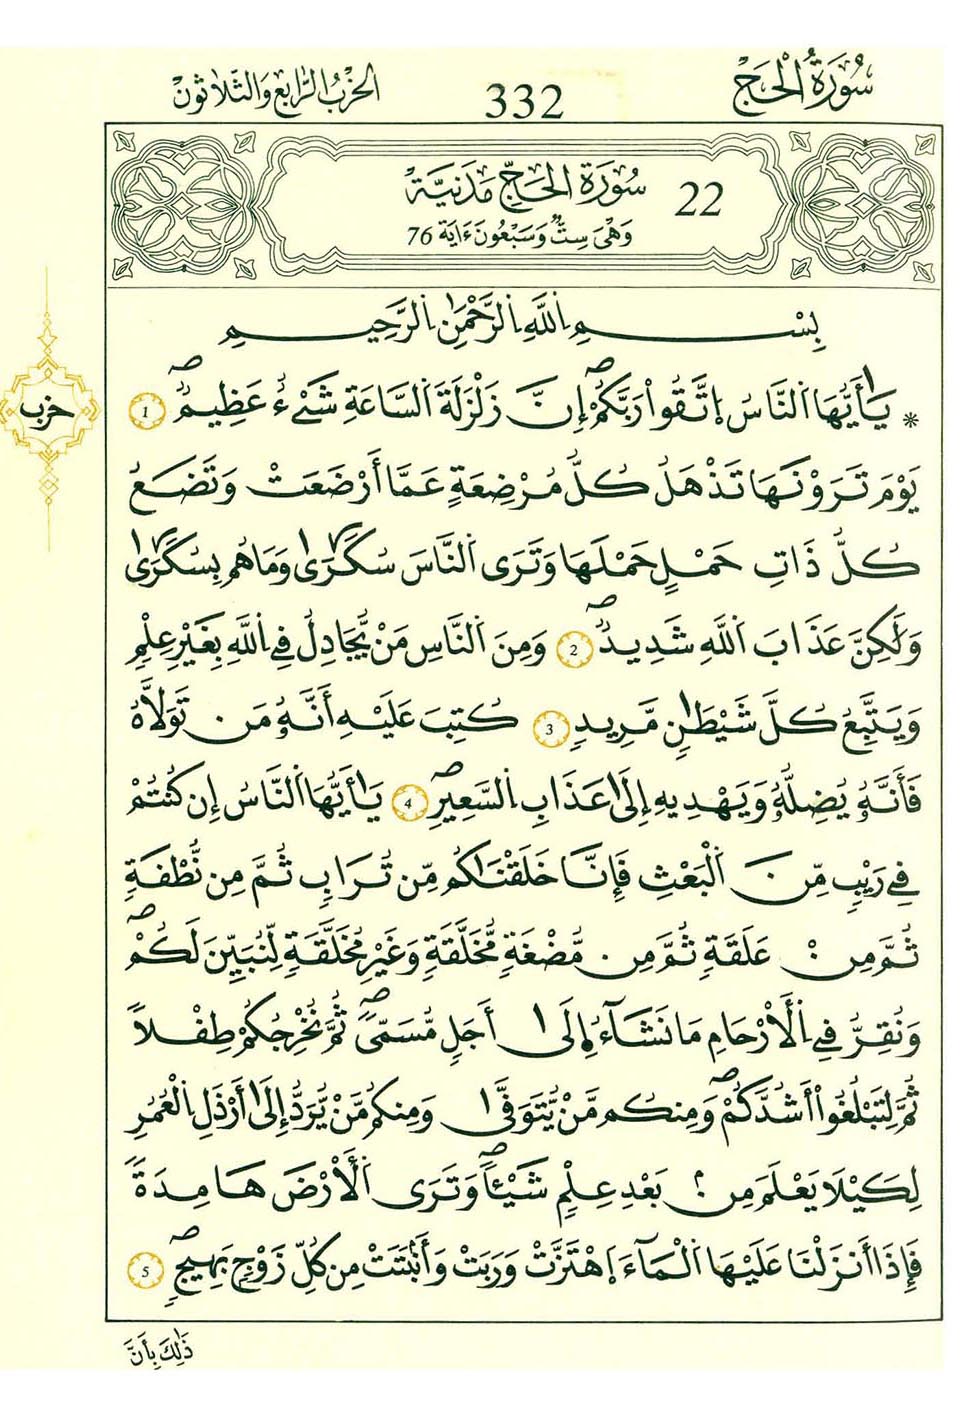 سُورَةُ الْحَجّ 332 الحِزْبُ الرَّابِعُ وَالثَّلاَثُونْ
22 سُورَةُ الحَجِّ مَدَنِيَّة
وَهْيَ سِتٌّ وَسَبْعُونَ ءَايَة 76
بِسْمِ اِللَّهِ اِلرَّحْمَٰنِ اِلرَّحِيمِ
حزب
* يَٰٓأَيُّهَا اَلنَّاسُ اُتَّقُواْ رَبَّكُمُۥٓ إِنَّ زَلْزَلَةَ اَلسَّاعَةِ شَےْءٌ عَظِيمٌ 1
يَوْمَ تَرَوْنَهَا تَذْهَلُ كُلُّ مُرْضِعَةٍ عَمَّا أَرْضَعَتْ وَتَضَعُ
كُلُّ ذَاتِ حَمْلٍ حَمْلَهَا وَتَرَى اَلنَّاسَ سُكَٰرَىٰ وَمَا هُم بِسُكَٰرَىٰ
وَلَٰكِنَّ عَذَابَ اَللَّهِ شَدِيدٌ 2 وَمِنَ اَلنَّاسِ مَنْ يُّجَادِلُ فِے اِللَّهِ بِغَيْرِ عِلْمٍ
وَيَتَّبِعُ كُلَّ شَيْطَٰنٍ مَّرِيدٍ 3 كُتِبَ عَلَيْهِ أَنَّهُۥ مَن تَوَلاَّهُ
فَأَنَّهُۥ يُضِلُّهُۥ وَيَهْدِيهِ إِلَىٰ عَذَابِ اِلسَّعِيرِ 4 يَٰٓأَيُّهَا اَلنَّاسُ إِن كُنتُمْ
فِے رَيْبٍ مِّنَ اَلْبَعْثِ فَإِنَّا خَلَقْنَٰكُم مِّن تُرَابٍ ثُمَّ مِن نُّطْفَةٍ
ثُمَّ مِنْ عَلَقَةٍ ثُمَّ مِن مُّضْغَةٍ مُّخَلَّقَةٍ وَغَيْرِ مُخَلَّقَةٍ لِّنُبَيِّنَ لَكُمْ
وَنُقِرُّ فِے اِلْأَرْحَامِ مَا نَشَآءُ إِلَىٰٓ أَجَلٍ مُّسَمّىً ثُمَّ نُخْرِجُكُمْ طِفْلاً
ثُمَّ لِتَبْلُغُوٓاْ أَشُدَّكُمْ وَمِنكُم مَّنْ يُّتَوَفَّىٰ وَمِنكُم مَّنْ يُّرَدُّ إِلَىٰٓ أَرْذَلِ اِلْعُمُرِ
لِكَيْلَا يَعْلَمَ مِنۢ بَعْدِ عِلْمٍ شَيْـٔاً وَتَرَى اَلْأَرْضَ هَامِدَةً
فَإِذَآ أَنزَلْنَا عَلَيْهَا اَلْمَآءَ اَهْتَزَّتْ وَرَبَتْ وَأَنۢبَتَتْ مِن كُلِّ زَوْجٍ بَهِيجٍ 5
ذَٰلِكَ بِأَنَّ